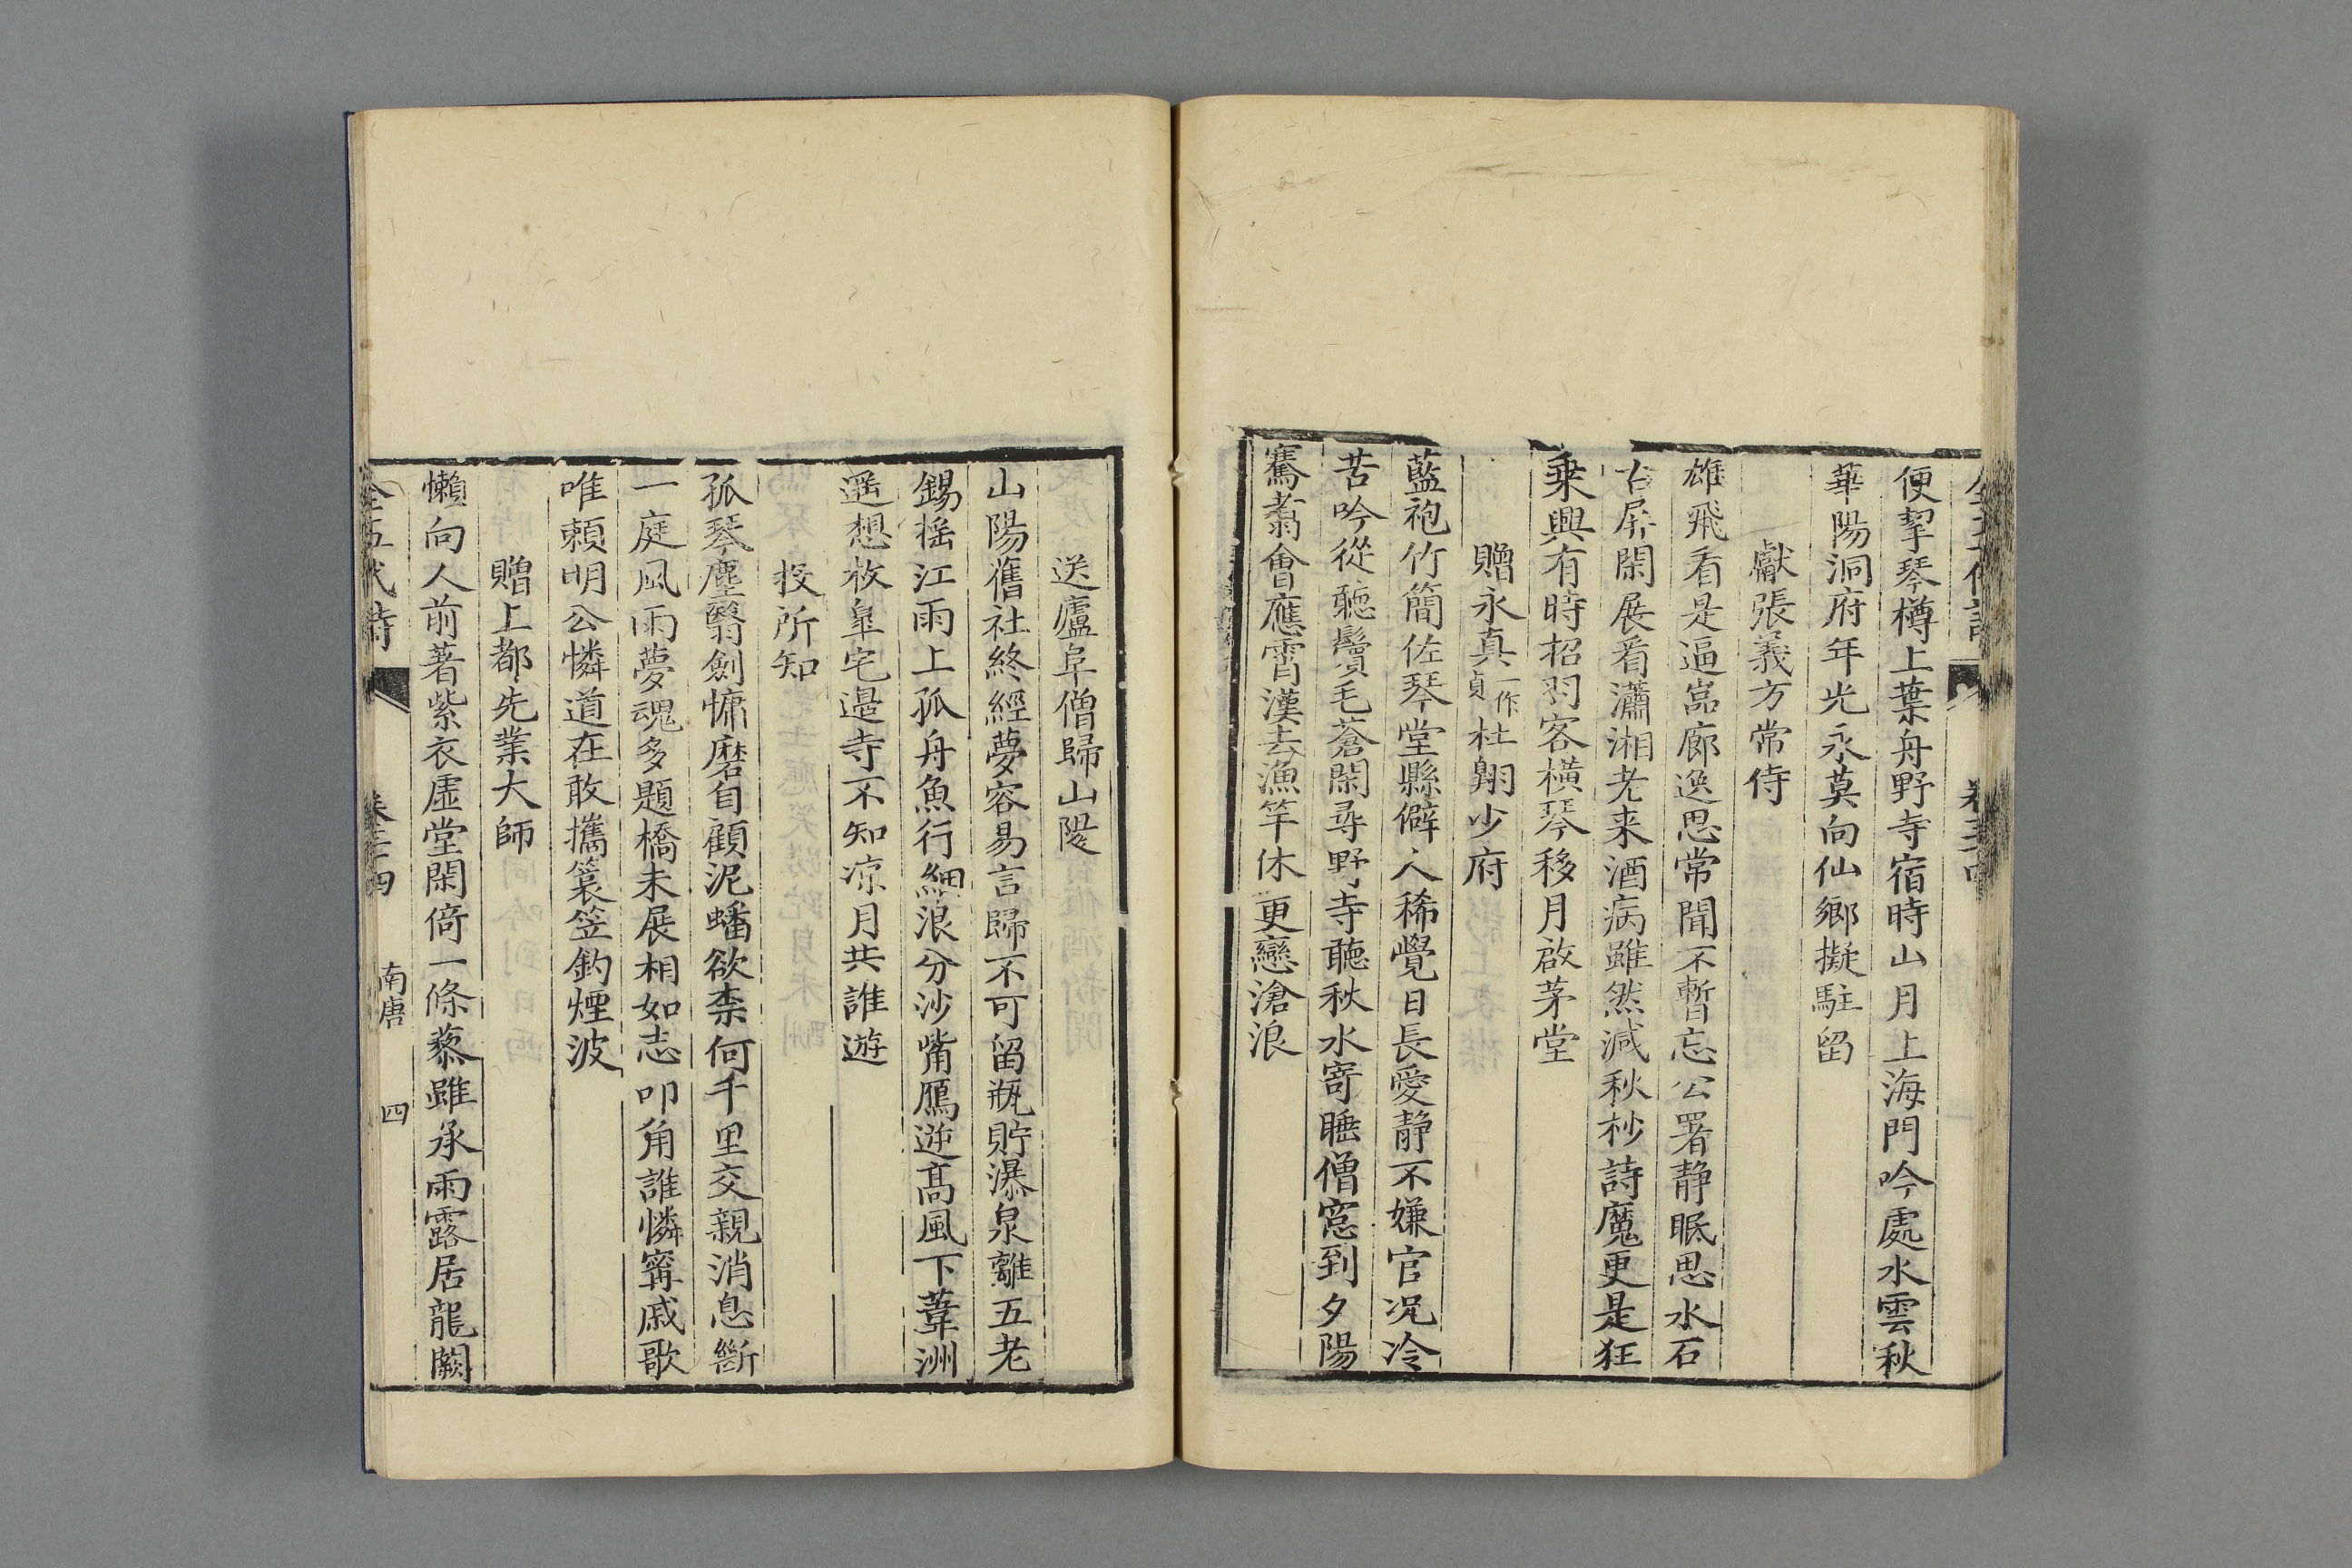 便挈琴樽上葉舟野寺宿時山月上海門吟處水雲秋
華陽洞府年光永莫向仙鄉擬駐留
獻張義方常侍
雄飛看是逼嵓廊逸思常聞不暫忘公署静眠思水石
古屏閑展看瀟湘老来酒病雖然減秋杪詩魔更是狂
乗興有時招羽客橫琴移月啟茅堂
贈永真一作貞杜翺少府
藍袍竹簡佐琴堂縣僻人稀覺日長愛静不嫌官况冷
苦吟從聽鬢毛蒼閑尋野寺聽秋水寄睡僧窓到夕陽
騫翥會應霄漢去漁竿休更戀滄浪
送廬阜僧歸山陽
山陽舊社終經夢容易言歸不可留瓶貯瀑泉離五老
錫摇江雨上孤舟魚行細浪分沙觜鴈逆髙風下葦洲
遥想枚皐宅邉寺不知凉月共誰遊
投所知
孤琴塵翳劍慵磨自顧泥蟠欲柰何千里交親消息斷
一庭風雨夢魂多題橋未展相如志叩角誰憐寗戚歌
唯頼明公憐道在敢攜簑笠釣煙波
贈上都先業大師
懶向人前著紫衣虛堂閑倚一條藜雖承雨露居龍闕
全五代詩
卷三十四
南唐
四